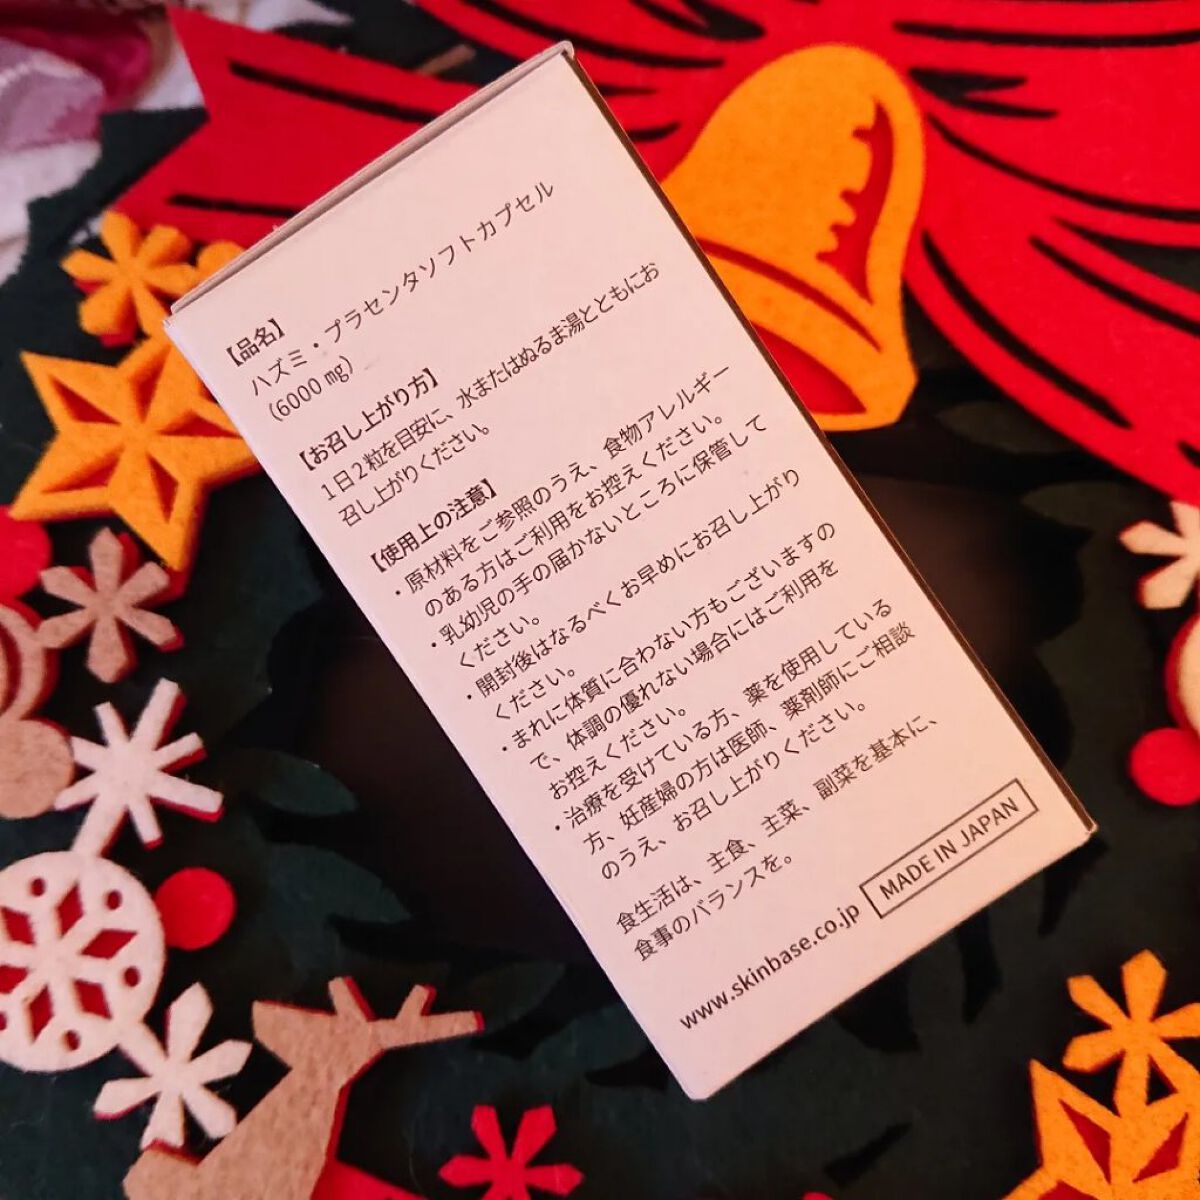 【品名】
ハズミ・プラセンタソフトカプセル
(6000㎎)
【お召し上がり方】
1日2粒を目安に、水またはぬるま湯とともにお
召し上がりください。
【使用上の注意】
・原材料をご参照のうえ、食物アレルギー
のある方はご利用をお控えください。
・乳幼児の手の届かないところに保管して
ください。
・開封後はなるべくお早めにお召し上がり
ください。
・まれに体質に合わない方もございますの
で、体調の優れない場合にはご利用を
お控えください。
・治療を受けている方、薬を使用している
方、妊産婦の方は医師、薬剤師にご相談
のうえ、お召し上がりください。
食生活は、主食、主菜、副菜を基本に、
食事のバランスを。
www.skinbase.co.jp
MADE IN JAPAN